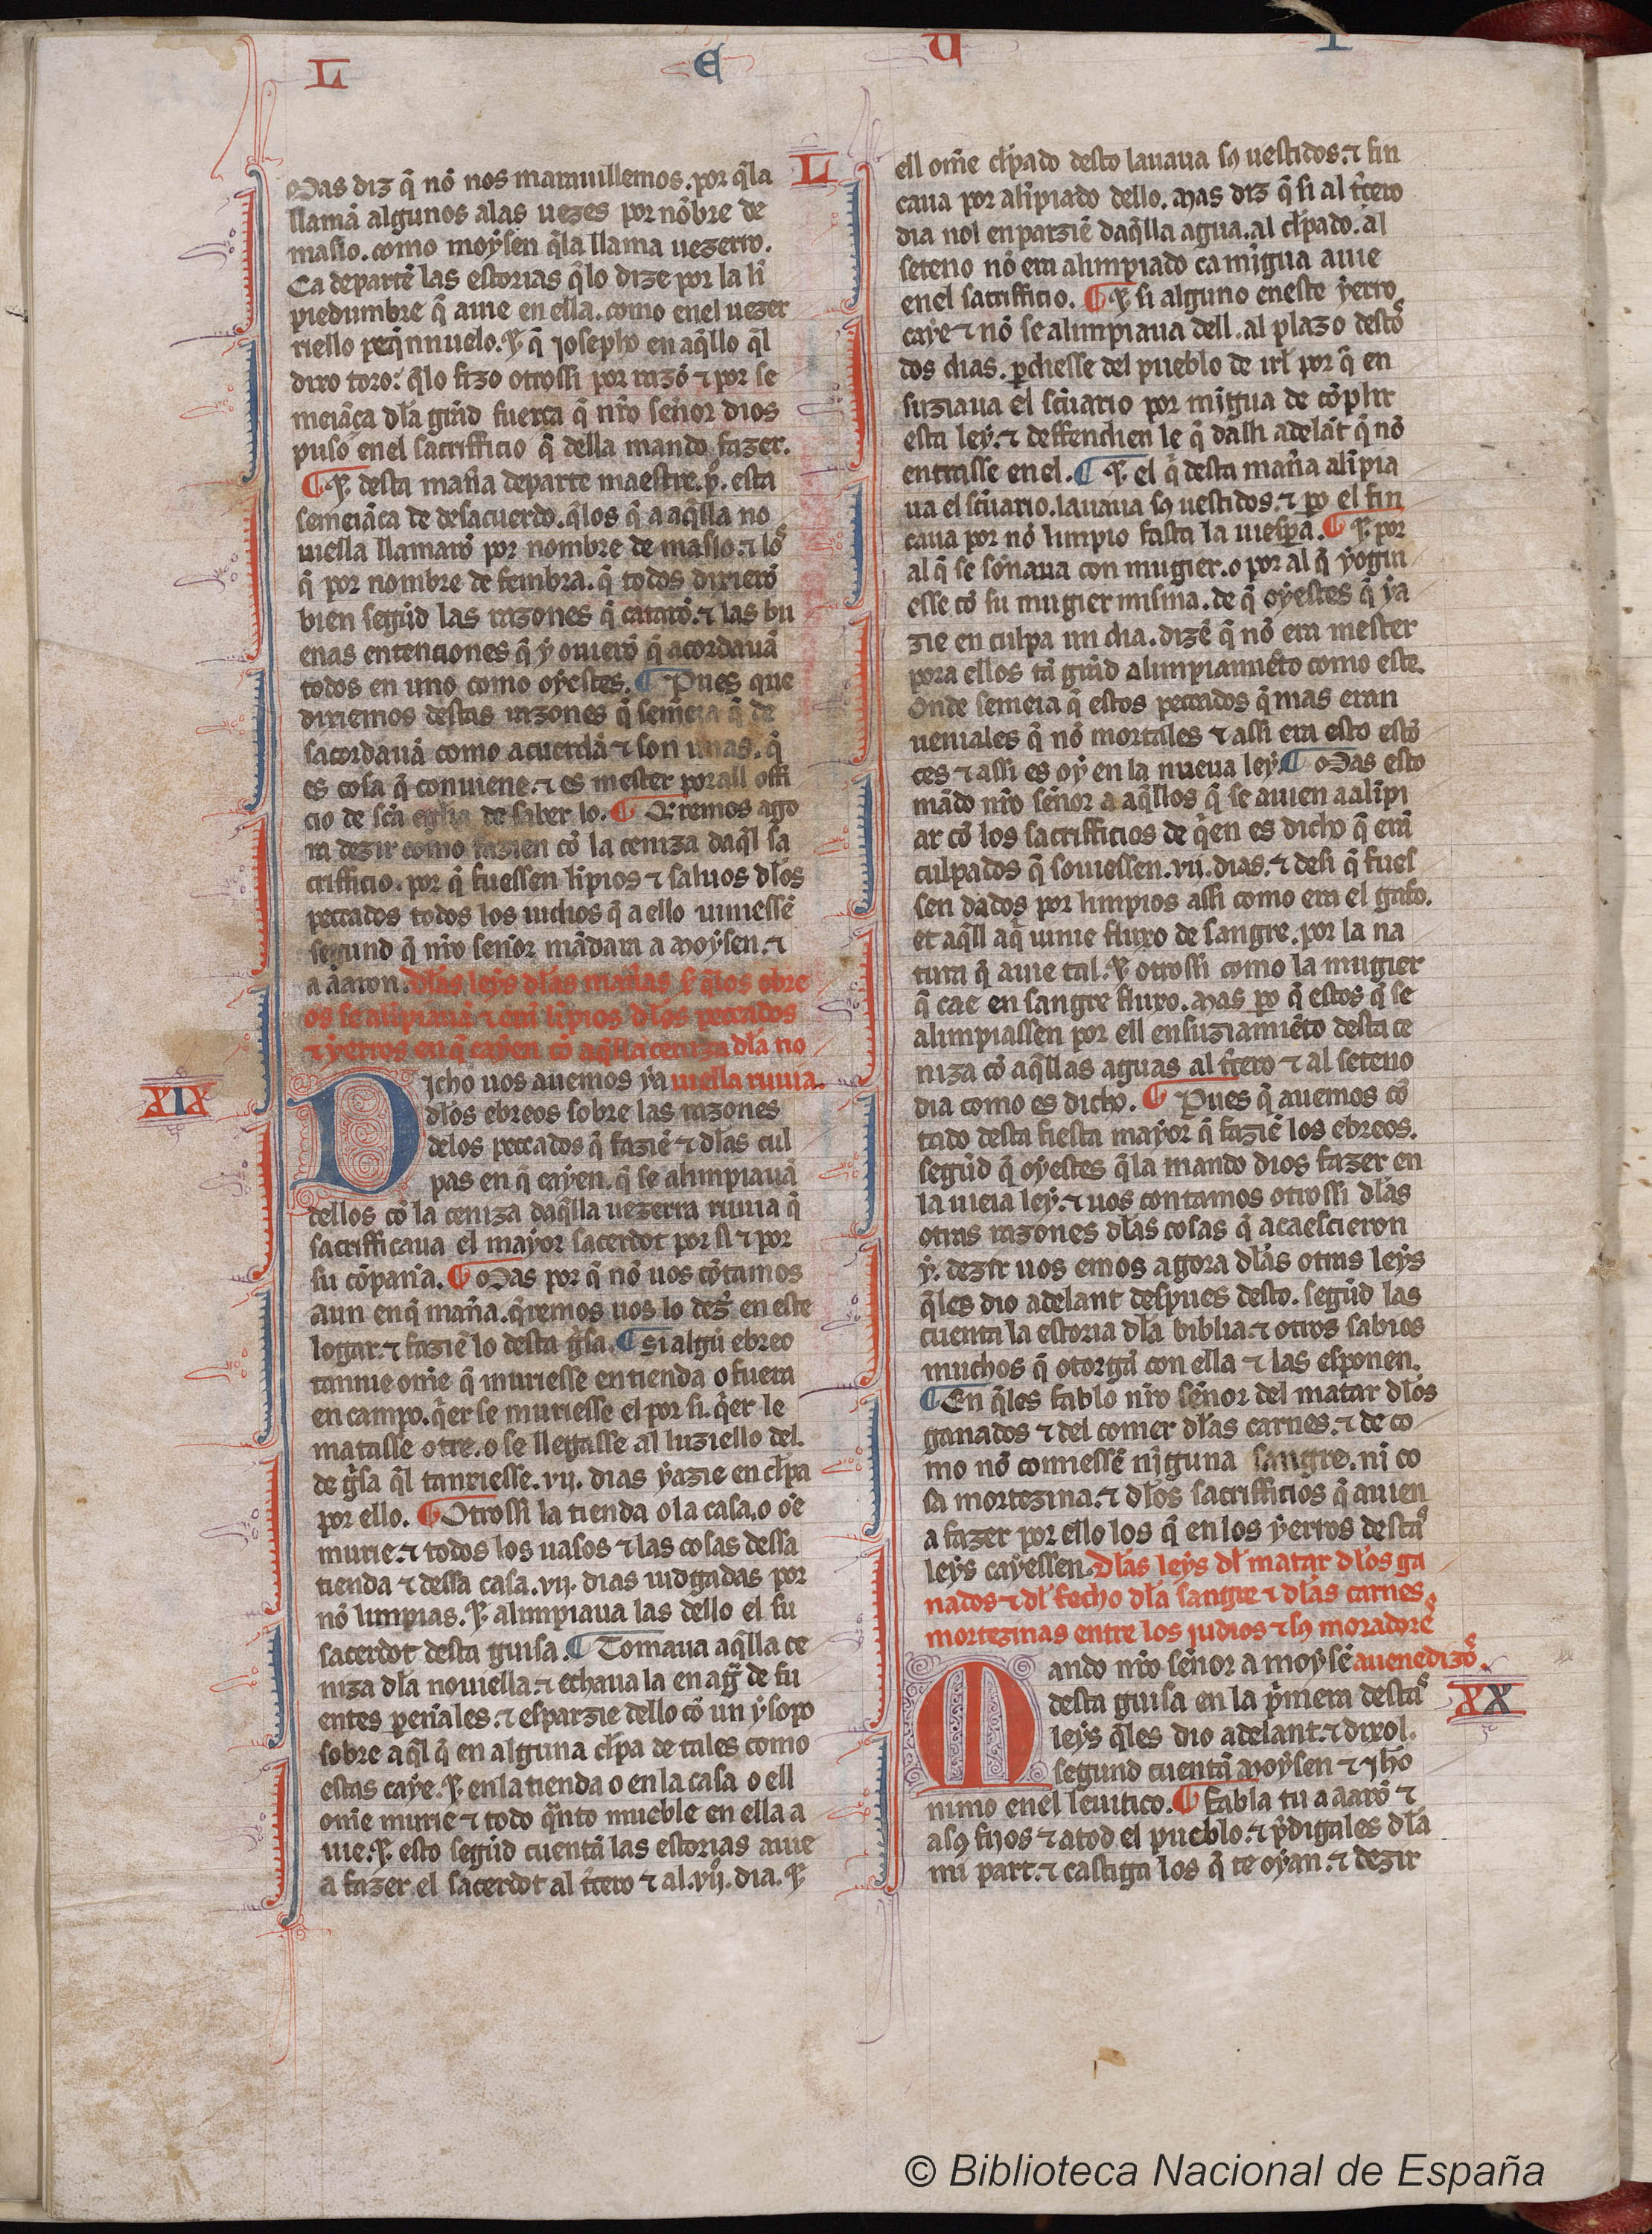 L E U I
Mas diz q̃ nõ nos marauillemos. por q̃la
llamã algunos alas uezes por nõbre de
maslo. como moysen q̃la llama uezerro.
Ca departẽ las estorias q̃lo dize por la li
piedumbre q̃ auie en ella. como enel uezer
riello peq̃nnuelo. ⁊ q̃ Josepho en aq̃llo q̃l
dixo toro: q̃lo fizo otrossi por razõ ⁊ por se
meiãça dła grãd fuerça q̃ nr̃o señor dios
puso enel sacrifficio q̃ della mando fazer.
¶ ⁊ desta maña departe maestre .p̃. esta
semeiãca de desacuerdo. q̃los q̃ a aq̃lla no
uiella llamarõ por nombre de maslo. ⁊ los
q̃ por nombre de fembra. q̃ todos dixierõ
bien segũd las razones q̃ catarõ. ⁊ las bu
enas entenciones q̃ y ouierõ q̃ acordauã
todos en uno como oyestes. ¶ Pues que
diriemos destas razones q̃ semeia q̃ de
sacordauã como acuerdã ⁊ son unas. q̃
es cosa q̃ conuiene. ⁊ es mester porall offi
cio de scã eglia de saber lo. ¶ Q̃remos ago
ra dezir como fazien cõ la ceniza daq̃l sa
crifficio. por q̃ fuessen lĩpios ⁊ saluos dłos
peccados todos los iudios q̃ a ello uiniessẽ
segund q̃ nr̃o señor mãdara a moysen. ⁊
a aaron. Dłas leys dłas mañas ẽ q̃los ebre
os se alĩpiauã ⁊ erã lĩpios dłos peccados
⁊ yerros en q̃ cayen cõ aq̃lla ceniza dła no
XIX
Dicho uos auemos ya uiella ruuia.
dłos ebreos sobre las razones
delos peccados q̃ faziẽ ⁊ dłas cul
pas en q̃ cayen. q̃ se alimpiauã
dellos cõ la ceniza daq̃lla uezerra ruuia q̃
sacrifficaua el mayor sacerdot por si ⁊ por
su cõpaña. ¶ Mas por q̃ nõ uos cõtamos
aun enq̃ maña. q̃remos uos lo dez̃ en este
logar. ⁊ faziẽ lo desta gĩsa. ¶ si algũ ebreo
tannie om̃e q̃ muriesse en tienda o fuera
en campo. q̃er se muriesse el por si. q̃er le
matasse otre. o se llegasse al luziello del.
de gĩsa q̃l tanxiesse. vij. dias yazie en cłpa
por ello. ¶ Otrossi la tienda o la casa. o õe
murie. ⁊ todos los uasos ⁊ las cosas dessa
tienda ⁊ dessa casa. vij. dias iudgadas por
nõ limpias. ⁊ alimpiaua las dello el su
sacerdot desta guisa. ¶ Tomaua aq̃lla ce
niza dła nouiella. ⁊ echaua la en ag̃ de fu
entes peñales. ⁊ esparzie dello cõ un ysopo
sobre aq̃l q̃ en alguna cłpa de tales como
estas caye. ⁊ en la tienda o en la casa o ell
om̃e murie ⁊ todo q̃nto mueble en ella a
uie. ⁊ esto segũd cuentã las estorias auie
a fazer el sacerdot al t̃cero ⁊ al .vijº. dia. ⁊
L
ell om̃e cłpado desto lauaua sꝯ uestidos. ⁊ fin
caua por alĩpiado dello. Mas diz q̃ si al t̃cero
dia nol enparziẽ daq̃lla agua. al cłpado. al
seteno nõ era alimpiado ca mĩgua auie
enel sacrifficio. ¶ ⁊ si alguno eneste yerro
caye ⁊ nõ se alimpiaua dell. al plazo desto͛
dos dias. pdiesse del pueblo de irł por q̃ en
suziaua el sc̃uario por mĩgua de cõplir
esta ley. ⁊ deffendien le q̃ dalli adelãt q̃ nõ
entrasse en el. ¶ ⁊ el q̃ desta maña alĩpia
ua el sc̃uario. lauaua sꝯ uestidos. ⁊ po el fin
caua por nõ limpio fasta la uiespa. ¶ ⁊ por
al q̃ se sõñaua con mugier. o por al q̃ yogui
esse cõ su mugier misma. de q̃ oyestes q̃ ya
zie en culpa un dia. dizẽ q̃ nõ era mester
pora ellos tã grãd alimpiamiẽto como este.
Onde semeia q̃ estos peccados q̃ mas eran
ueniales q̃ nõ mortales ⁊ assi era esto estõ
ces ⁊ assi es oy en la nueua ley. ¶ Mas esto
mãdo nr̃o señor a aq̃llos q̃ se auien a alĩpi
ar cõ los sacrifficios de q̃en es dicho q̃ erã
culpados q̃ souiessen. vij. dias. ⁊ desi q̃ fues
sen dados por limpios assi como era el gafo.
et aq̃ll aq̃ uinie fluxo de sangre. por la na
tura q̃ auie tal. ⁊ otrossi como la mugier
q̃ cae en sangre fluxo. Mas po q̃ estos q̃ se
alimpiassen por ell ensuziamiẽto desta ce
niza cõ aq̃llas aguas al t̃cero ⁊ al seteno
dia como es dicho. ¶ Pues q̃ auemos cõ
tado desta fiesta mayor q̃ faziẽ los ebreos.
segũd q̃ oyestes q̃la mando dios fazer en
la uieia ley. ⁊ uos contamos otrossi dłas
otras razones dłas cosas q̃ acaescieron
y. dezir uos emos agora dłas otras leys
q̃les dio adelant despues desto. segũd las
cuenta la estoria dła biblia. ⁊ otros sabios
muchos q̃ otorgã con ella ⁊ las esponen.
¶ En q̃les fablo nr̃o señor del matar dłos
ganados ⁊ del comer dłas carnes. ⁊ de co
mo nõ comiessẽ nĩguna sangre. ni co
sa mortezina. ⁊ dłos sacrifficios q̃ auien
a fazer por ello los q̃ en los yerros desta͛
leys cayessen. Dłas leys dł matar dłos ga
nados ⁊ dł fecho dła sangre ⁊ dłas carnes
mortezinas entre los judios ⁊ sꝯ moradore͛
Mando nr̃o señor a moysẽ auenedizo͛.
desta guisa en la p̃mera desta͛
XX
leys q̃les dio adelant. ⁊ dixol.
segund cuentã moysen ⁊ jhõ
nimo enel leuitico. ¶ Fabla tu a aarõ ⁊
a sꝯ fijos ⁊ a tod el pueblo. ⁊ p̃digales dła
mi part. ⁊ castiga los q̃ te oyan. ⁊ dezir
© Biblioteca Nacional de España